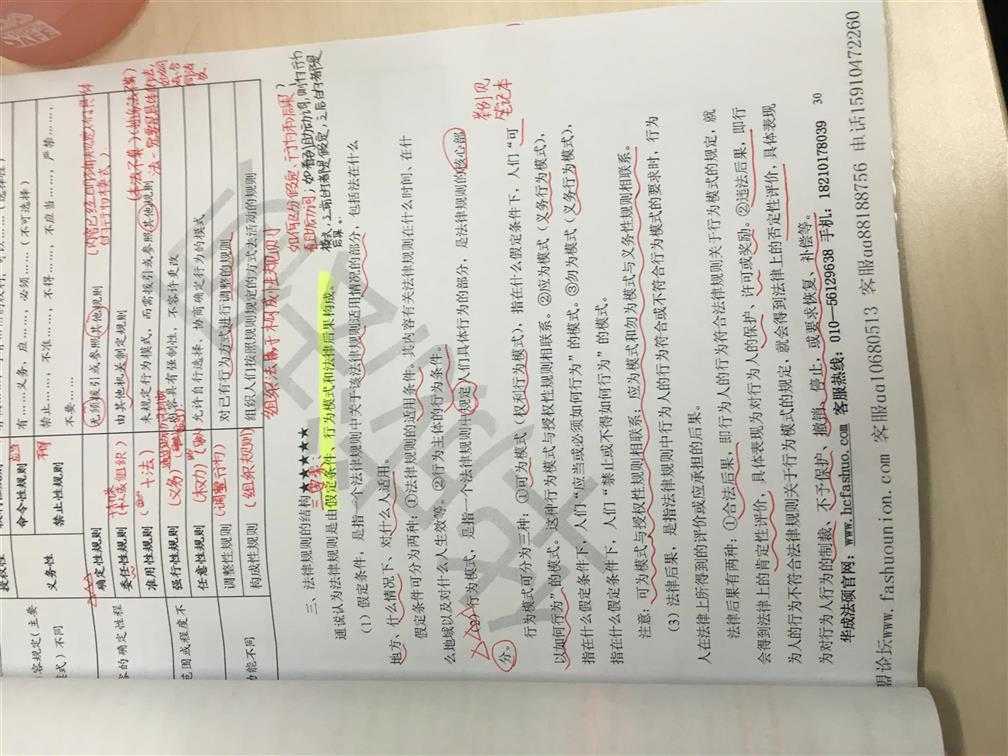 有……义务，应……，必须……（不可选择）
命令性规则
义务性
禁止……，不准……，不得……，不应当……，严禁……，
不要……
禁止性规则
无须援引或参照其他规则
确定性规则
由其他机关制定规则
委任性规则
未规定行为模式，而需援引或参照其他规则
准用性规则
规则具有强制性，不容许更改
强行性规则
（义务）
允许自行选择、协商确定行为的模式
任意性规则
（权力）
对已有行为方式进行调整的规则
调整性规则
（调整言行）
组织人们按照规则规定的方式去活动的规则
构成性规则
（组织规则）
组织法属于构成性规则
三、法律规则的结构★★★★★
三要素：
通说认为法律规则是由假定条件、行为模式和法律后果构成。
（1）假定条件，是指一个法律规则中关于该法律规则适用情况的部分，包括法在什么
地方、什么情况下、对什么人适用。
假定条件可分为两种：①法律规则的适用条件。其内容有关法律规则在什么时间、在什
么地域以及对什么人生效等。②行为主体的行为条件。
行为模式，是指一个法律规则中规定人们具体行为的部分，是法律规则的核心部
分。
举例见
笔记本
行为模式可分为三种：①可为模式（权利行为模式），指在什么假定条件下，人们“可
以如何行为”的模式。这种行为模式与授权性规则相联系。②应为模式（义务行为模式），
指在什么假定条件下，人们“应当或必须如何行为”的模式。③勿为模式（义务行为模式），
指在什么假定条件下，人们“禁止或不得如何行为”的模式。
注意：可为模式与授权性规则相联系；应为模式和勿为模式与义务性规则相联系。
（3）法律后果，是指法律规则中行为人的行为符合或不符合行为模式的要求时，行为
人在法律上所得到的评价或应承担的后果。
法律后果有两种：①合法后果，即行为人的行为符合法律规则关于行为模式的规定，就
会得到法律上的肯定性评价，具体表现为对行为人的保护、许可或奖励。②违法后果，即行
为人的行为不符合法律规则关于行为模式的规定，就会得到法律上的否定性评价，具体表现
为对行为人行为的制裁、不予保护、撤销、停止，或要求恢复、补偿等。
30
华成法硕官网：www.hcfashuo.com 客服热线：010—56129638 手机：18210178039
盟论坛www.fashuounion.com 客服qq10680513 客服qq88188756 电话15910472260